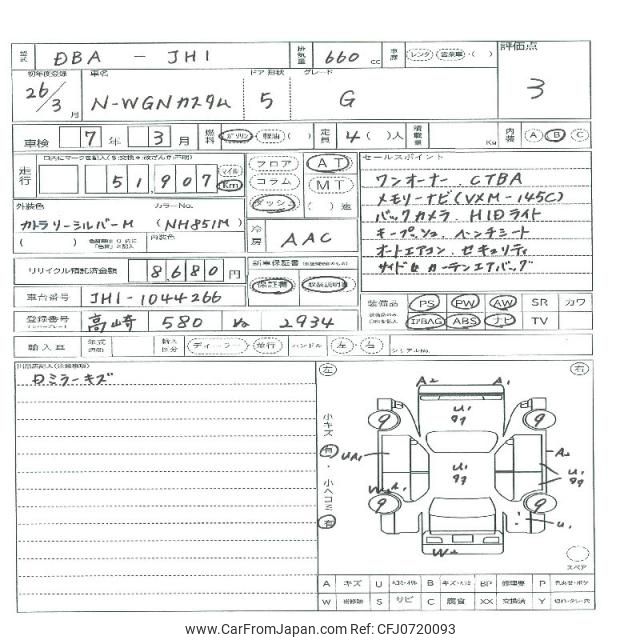 型式 DBA - JH1 排気量 660 cc 車歴 レンタ ( ) 評価点
初年度登録 車名 ドア 形状 グレード
26/3 月 N-WGNカスタム 5 G 3
車検 7 年 3 月 燃料 ガソリン 軽油 ( ) 定員 4 ( ) 人 積載量 Kg 内装 A B C
走行 51,907 マイル Km
フロア AT セールスポイント
コラム MT
ダッシュ ( ) 速
ワンオーナー CTBA
メモリーナビ(VXM-145C)
バックカメラ HIDライト
キープッシュ ベンチシート
オートエアコン セキュリティ
サイドセカーテンエアバッグ
外装色 カラーNo.
カトラリーシルバーM (NH851M)
( ) 内装色
冷房 AAC
リサイクル預託済金額 8680 円 新車保証書 保証書 取扱説明書
車台番号 JH1-1044266 装備品 PS PW AW SR カワ
登録番号 高崎 580 2934 AIRBAG ABS ナビ TV
輸入車 年式 輸入区分 ディーラー 並行 ハンドル 左・右 シリアルNo.
Dミラーキズ
左 右
A2 A1
U1
9 9
小キズ 有 ・ 小ヘコミ 有
UA1 A2
U1
W2 A1
9 9
U1
W2
スペア
A キズ U B キズ・ヘコミ BP 修理要 P
W S サビ C 腐食 XX 交換済 Y
www.CarFromJapan.com © Car From Japan Ltd. CFJ0720093